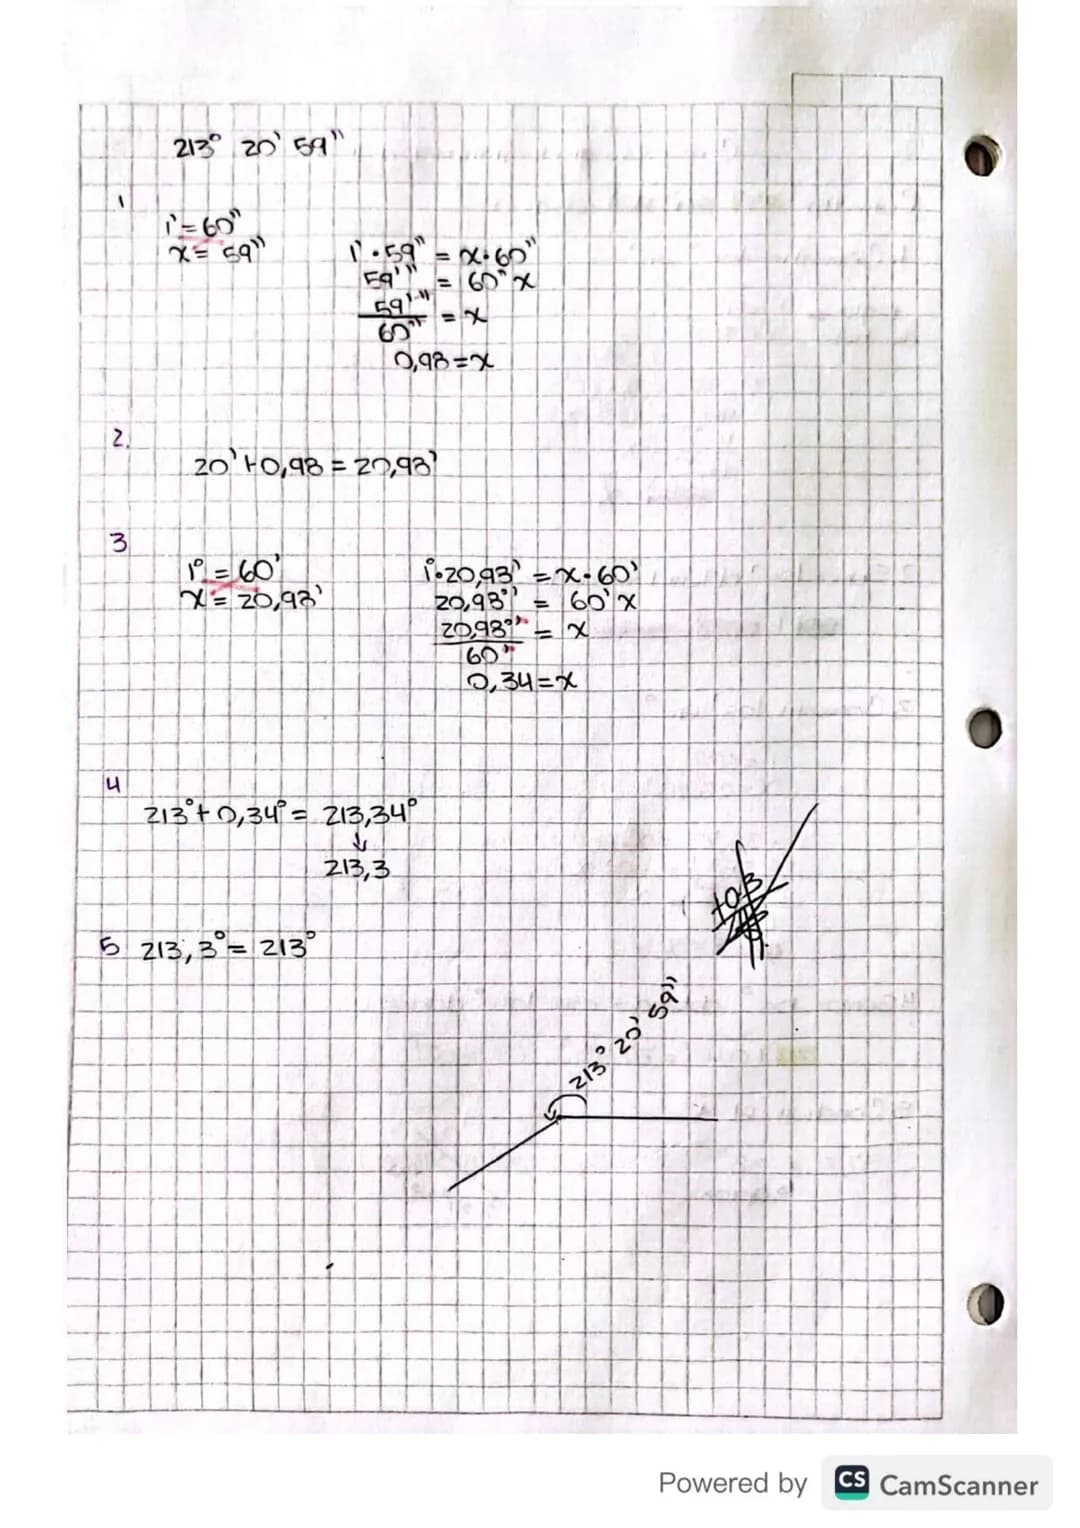 213° 20' 59"
1
1' = 60"
x = 59"
1' · 59" = x · 60"
59'" = 60" x
59'·" = x
60"
0,98 = x
2.
20' + 0,98 = 20,98'
3
1° = 60'
x = 20,98'
1° · 20,98' = x · 60'
20,98°' = 60' x
20,98°' = x
60'
0,34 = x
4
213° + 0,34° = 213,34°
↓
213,3
5 213,3° = 213°
213° 20' 59"
Powered by CS CamScanner